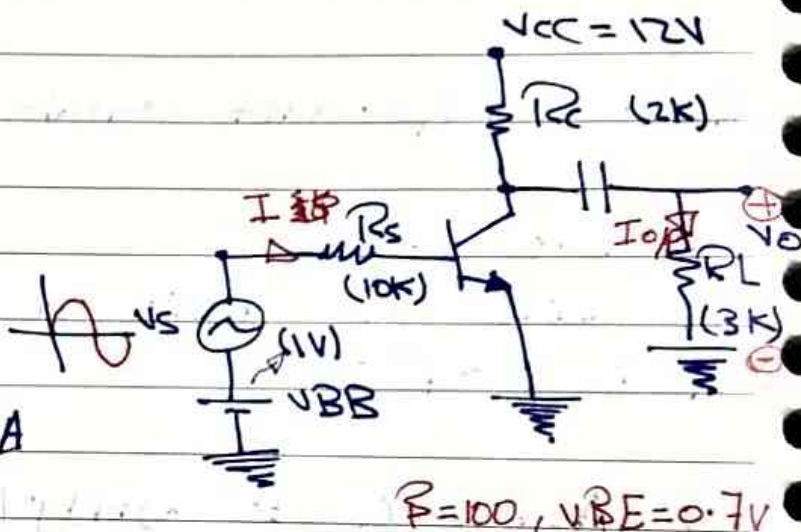 VCC = 12V
RC (2K)
I Rs
(10K)
Io/p
VO
RL
(3K)
VS
(1V)
VBB
A
β=100, VBE=0.7V